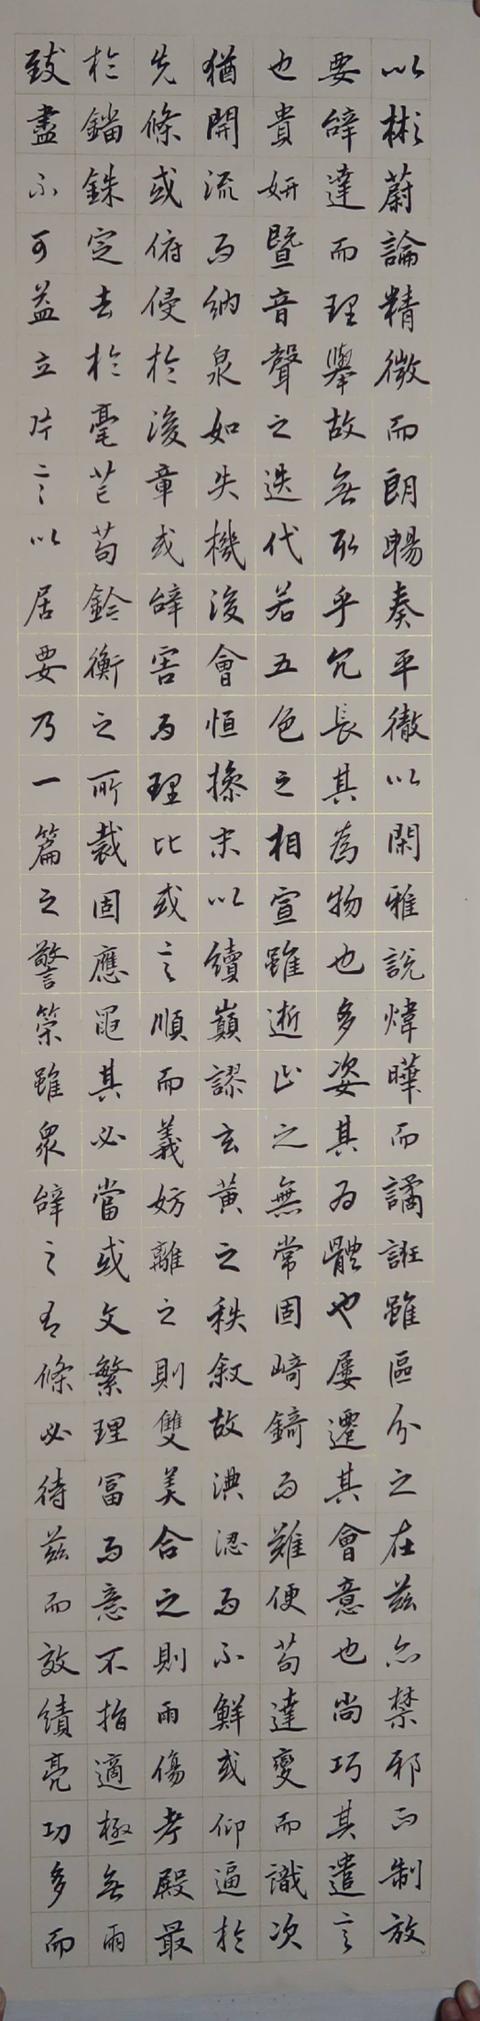 以彬蔚論精微而朗暢奏平徹以閑雅說煒曄而譎誑雖區分之在兹亦禁邪而制放
要辭達而理舉故無取乎冗長其為物也多姿其為體也屢遷其會意也尚巧其遣言
也貴妍暨音聲之迭代若五色之相宣雖逝止之無常固崎錡而難便苟達變而識次
猶開流而納泉如失機後會恒操末以續巔謬玄黃之秩叙故淟涊而不鮮或仰逼於
先條或俯侵於後章或辭害而理比或言順而義妨離之則雙美合之則兩傷考殿最
於錙銖定去於毫芒苟銓衡之所裁固應繩其必當或文繁理富而意不指適極無兩
致盡不可益立片言以居要乃一篇之警策雖衆辭之有條必待兹而效績亮功多而